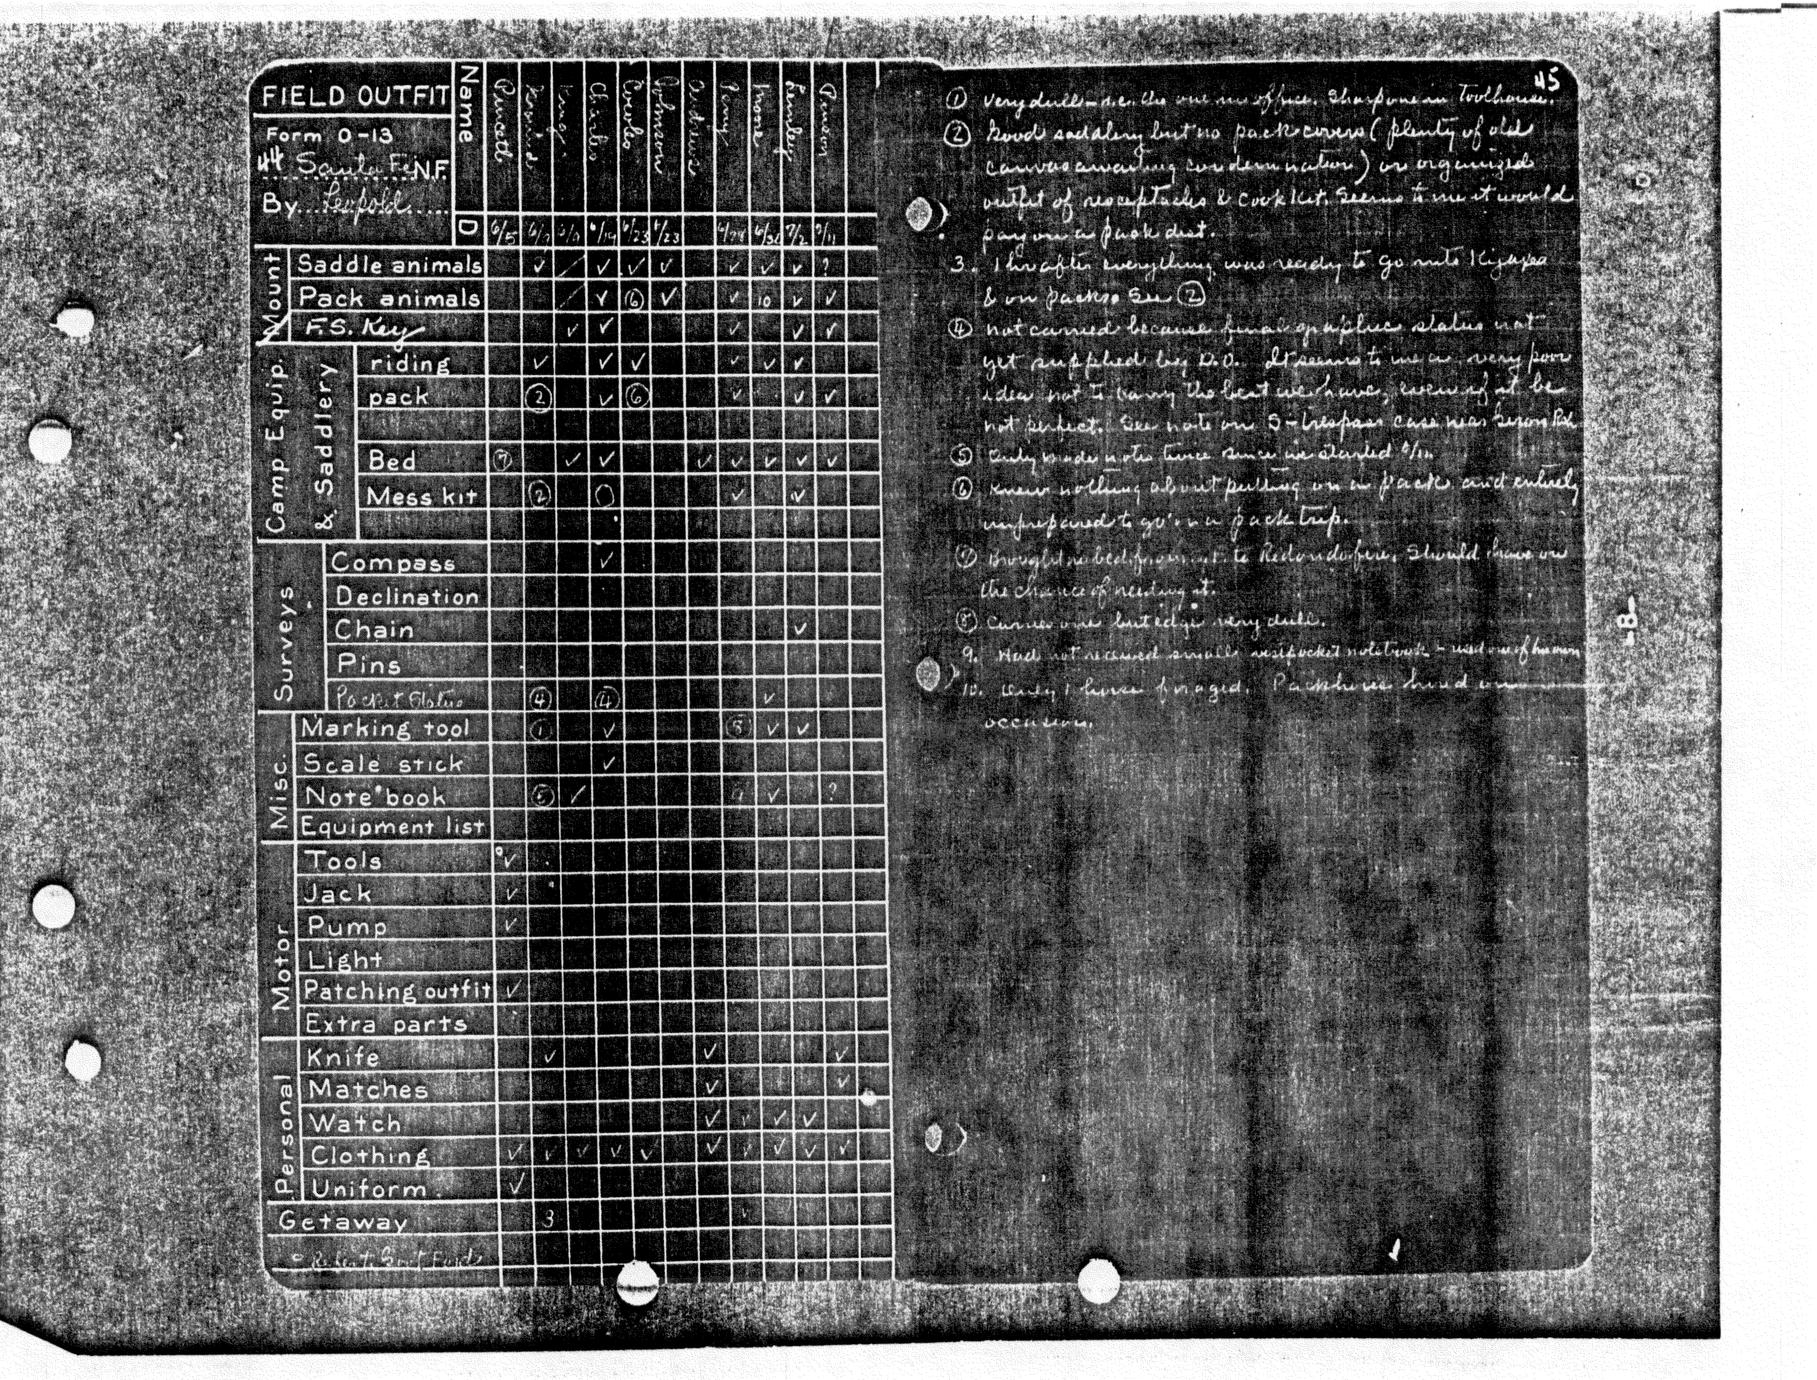 FIELD OUTFIT
Form O-13
44 Santa Fe N.F.
By Leopold
Name
D
6/5 6/7 6/9 6/19 6/23 6/23 6/28 6/30 7/2 7/11
Mount
Saddle animals ✓ / ✓ ✓ ✓ ✓ ✓ ✓ ?
Pack animals / ✓ 6 ✓ ✓ 10 ✓ ✓
F.S. Key ✓ ✓ ✓ ✓ ✓
Camp Equip. & Saddlery
riding ✓ ✓ ✓ ✓ ✓ ✓
pack 2 ✓ 6 ✓ ✓ ✓
Bed 7 ✓ ✓ ✓ ✓ ✓ ✓ ✓
Mess kit 2 ✓ ✓
Surveys
Compass ✓
Declination
Chain ✓
Pins
Pocket Status 4 4 ✓
Misc.
Marking tool 1 ✓ 8 ✓ ✓
Scale stick ✓
Note book 5 ✓ 9 ✓ ?
Equipment list
Motor
Tools ✓
Jack ✓
Pump ✓
Light
Patching outfit ✓
Extra parts
Personal
Knife ✓ ✓ ✓
Matches ✓ ✓
Watch ✓ ✓ ✓ ✓
Clothing ✓ ✓ ✓ ✓ ✓ ✓ ✓ ✓ ✓ ✓
Uniform ✓
Getaway 3 ✓
45
1 Very dull – i.e. the one in office. Sharp one in Toolhouse.
2 Good saddlery but no pack covers (plenty of old
canvas awaiting condemnation) or organized
outfit of receptacles & cook kit. Seems to me it would
pay on a pack dist.
3. 1 hr after everything was ready to go into
& on packs. See 2
4 Not carried because final graphic status not
yet supplied by D.O. It seems to me a very poor
idea not to carry the best we have, even if it be
not perfect. See note on S-trespass case near
5 Only made notes twice since we started
6 Knew nothing about putting on a pack and entirely
unprepared to go on a pack trip.
7 Brought no bed to Redondo fire. Should have on
the chance of needing it.
8 Carries one but edge very dull.
9. Had not received small vestpocket notebook – used one of his own
10. Only 1 horse foraged. Packhorse hired on
occasion.
-8-